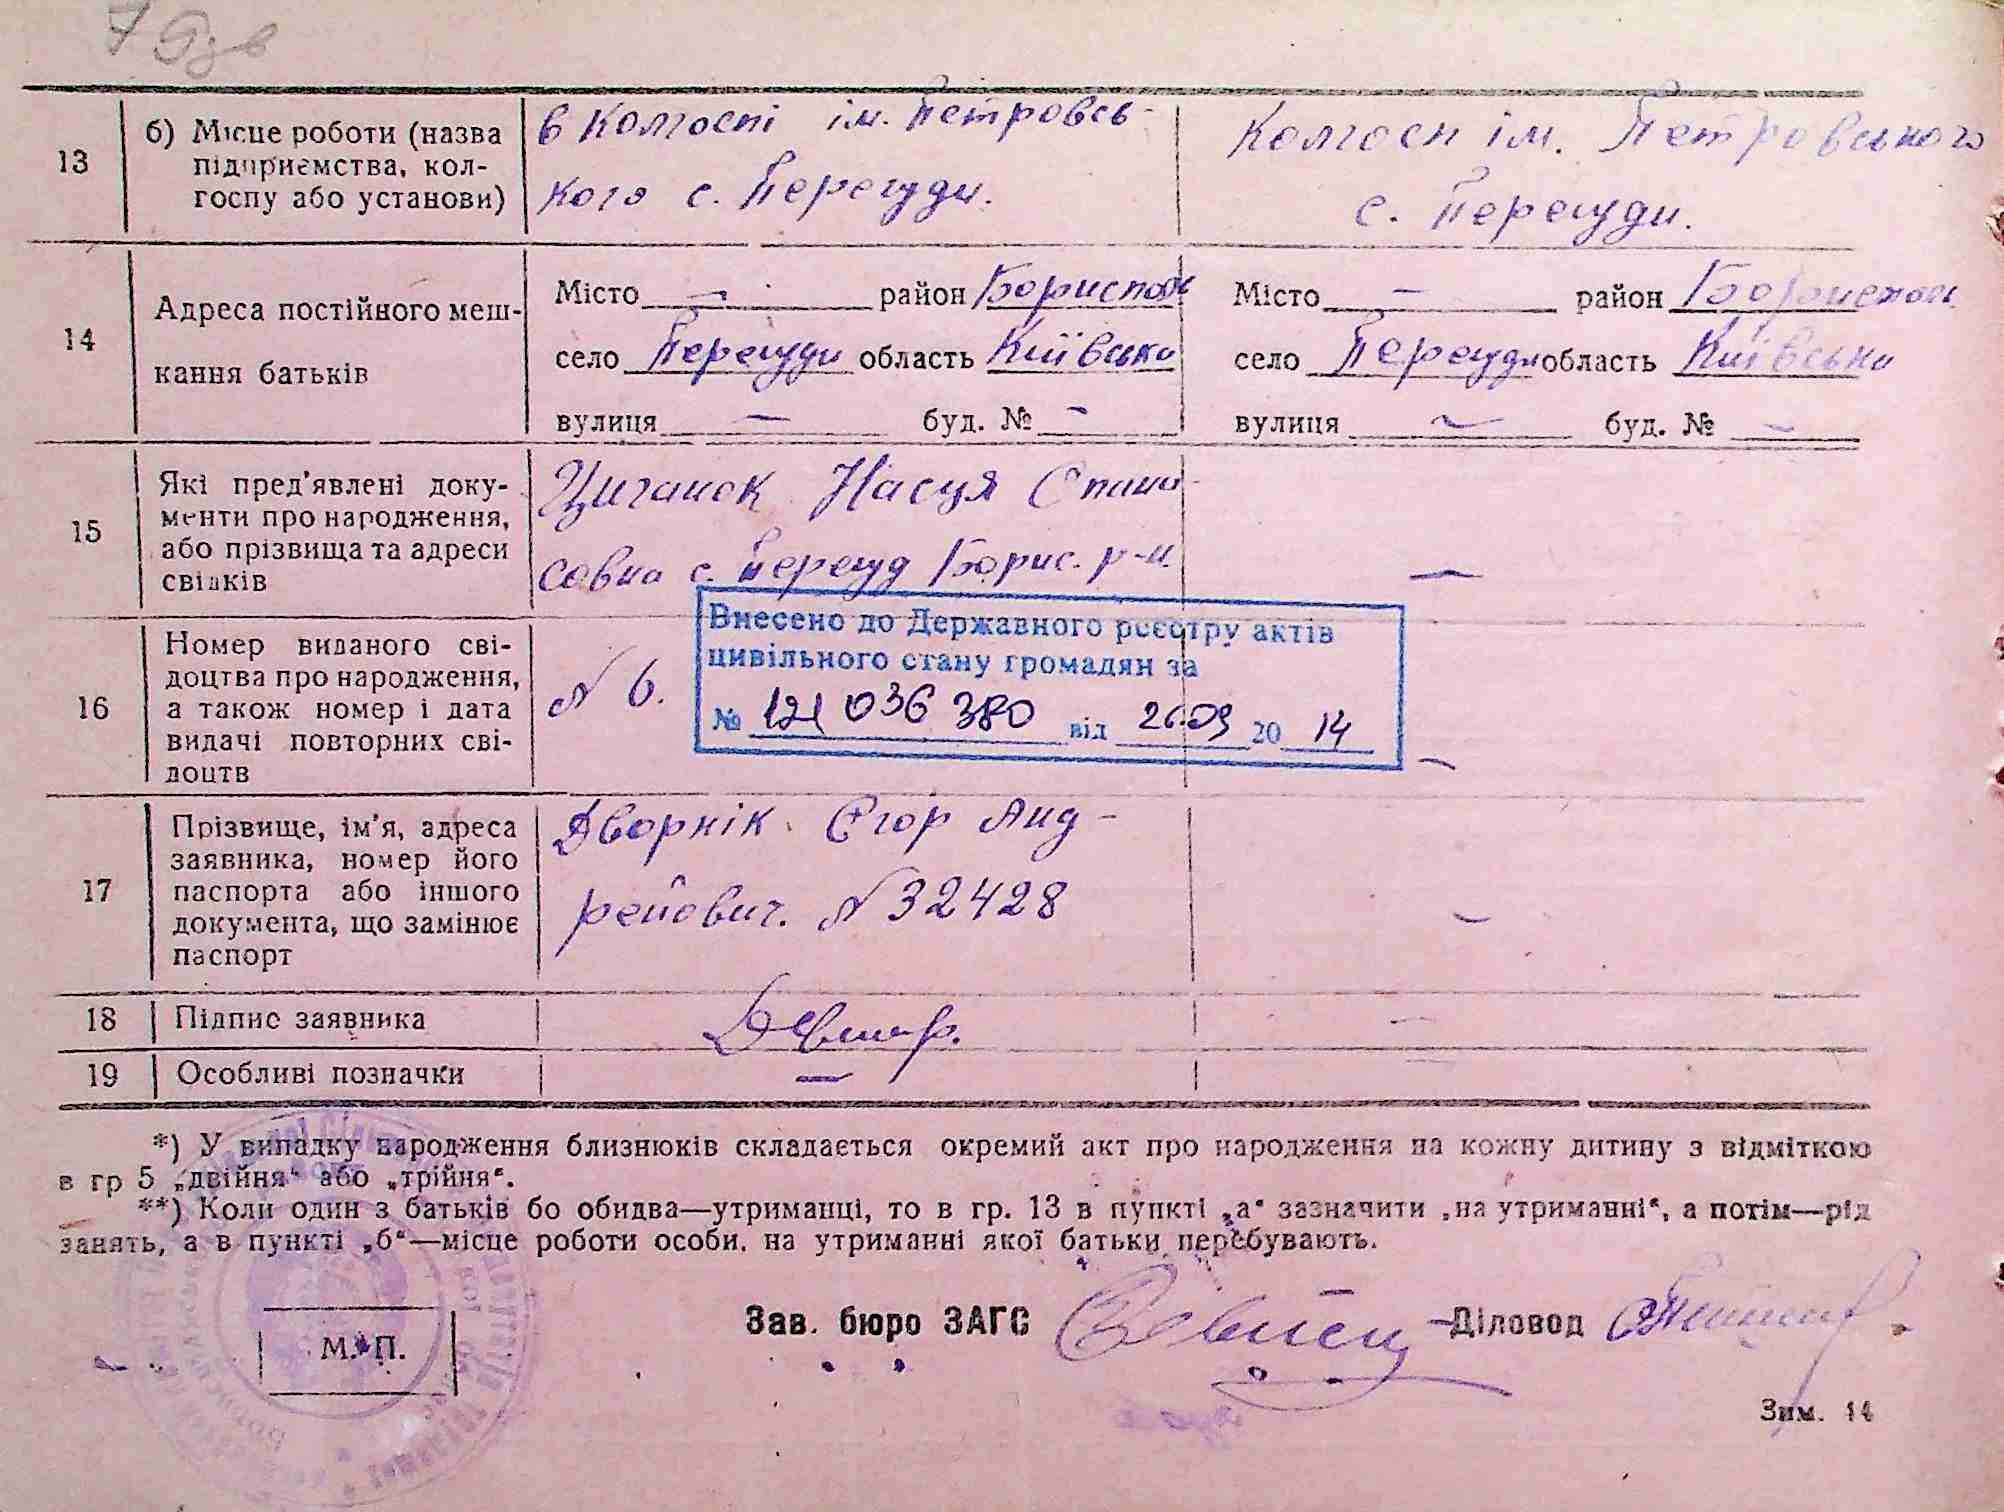 13
б) Місце роботи (назва
підприємства, кол-
госпу або установи)
в колгоспі ім. Петровсь-
кого с. Перегуди.
Колгосп ім. Петровського
с. Перегуди.
14
Адреса постійного меш-
кання батьків
Місто — район Бориспол
село Перегуди область Київська
вулиця — буд. № -
Місто — район Бориспол
село Перегуди область Київська
вулиця — буд. № —
15
Які пред'явлені доку-
менти про народження,
або прізвища та адреси
свідків
Циганок Насця Опана-
совна с. Перегуд Борис. р-н.
—
16
Номер виданого сві-
доцтва про народження,
а також номер і дата
видачі повторних сві-
доцтв
N 6.
Внесено до Державного реєстру актів
цивільного стану громадян за
№ 121 036 380 від 26.09 2014
—
17
Прізвище, ім'я, адреса
заявника, номер його
паспорта або іншого
документа, що замінює
паспорт
Дворнік Єгор Анд-
рейович. N 32428
—
18
Підпис заявника
—
19
Особливі позначки
—
—
*) У випадку народження близнюків складається окремий акт про народження на кожну дитину з відміткою
в гр 5 „двійня“ або „трійня“.
**) Коли один з батьків бо обидва—утриманці, то в гр. 13 в пункті „а“ зазначити „на утриманні“, а потім—рід
занять, а в пункті „б“—місце роботи особи, на утриманні якої батьки перебувають.
Зав. бюро ЗАГС
Діловод
М. П.
Зим. 14